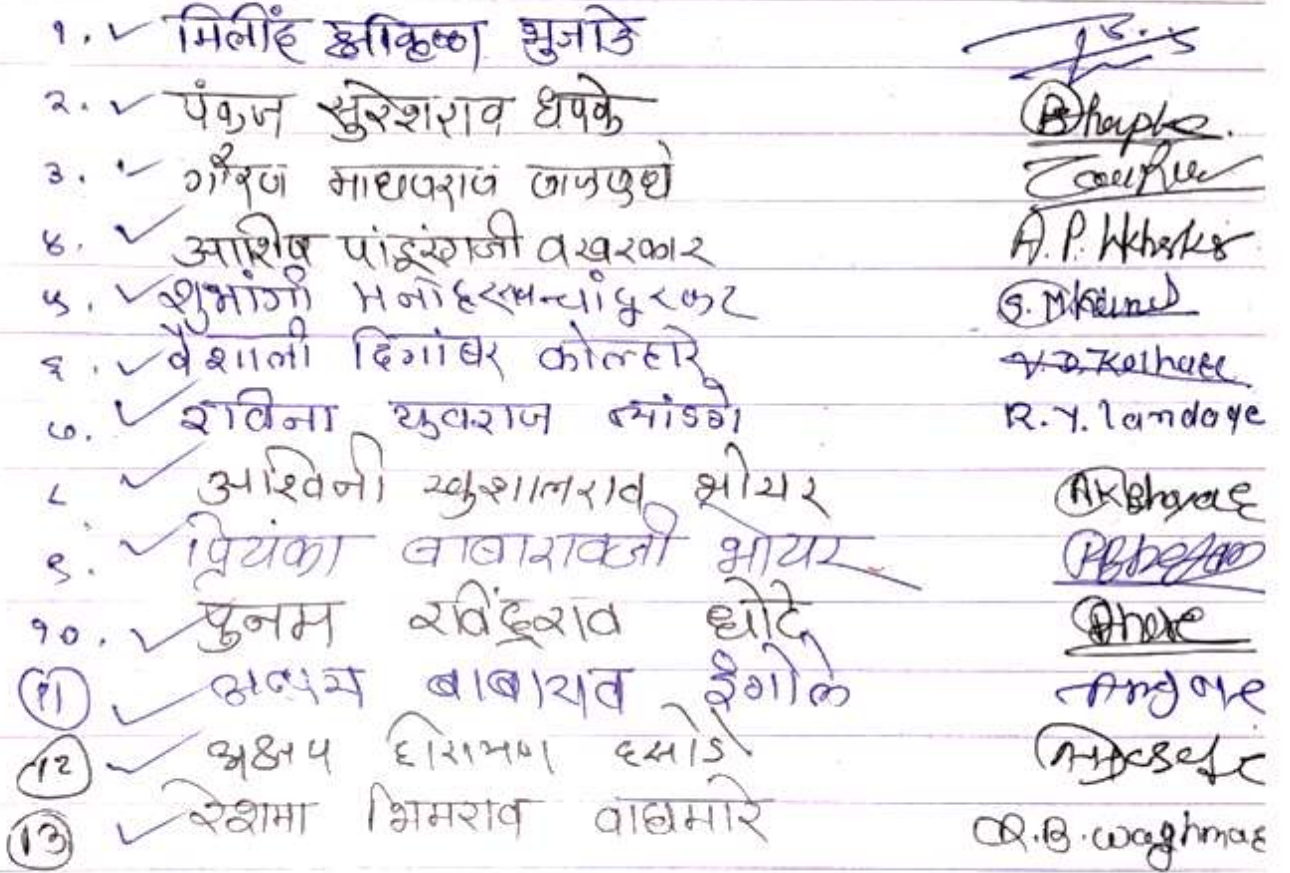 १. मिलींद श्रीकृष्णा भुजाडे
२. पंकज सुरेशराव धपके Dhapke.
३. गौरव माधवराव
४. आशिष पांडूरंगजी वखरकार A.P. Wkhrkar
५. शुभांगी मनोहरराव चांदुरकर S.M.
६. वैशाली दिगांबर कोल्हारे V.D. Kolhare
७. राविना युवराज ल्यांडगे R.Y. landage
८ अश्विनी खुशालराव भोयर AKBhoyar
९. प्रियंका बाबारावजी भोयर
१०. पुनम रविंद्रराव धोटे Dhote
11 अक्षय बाबाराव इंगोले Ingole
12 अक्षय हिरामण दसोडे
13 रेशमा भिमराव वाघमारे R.B. waghmare